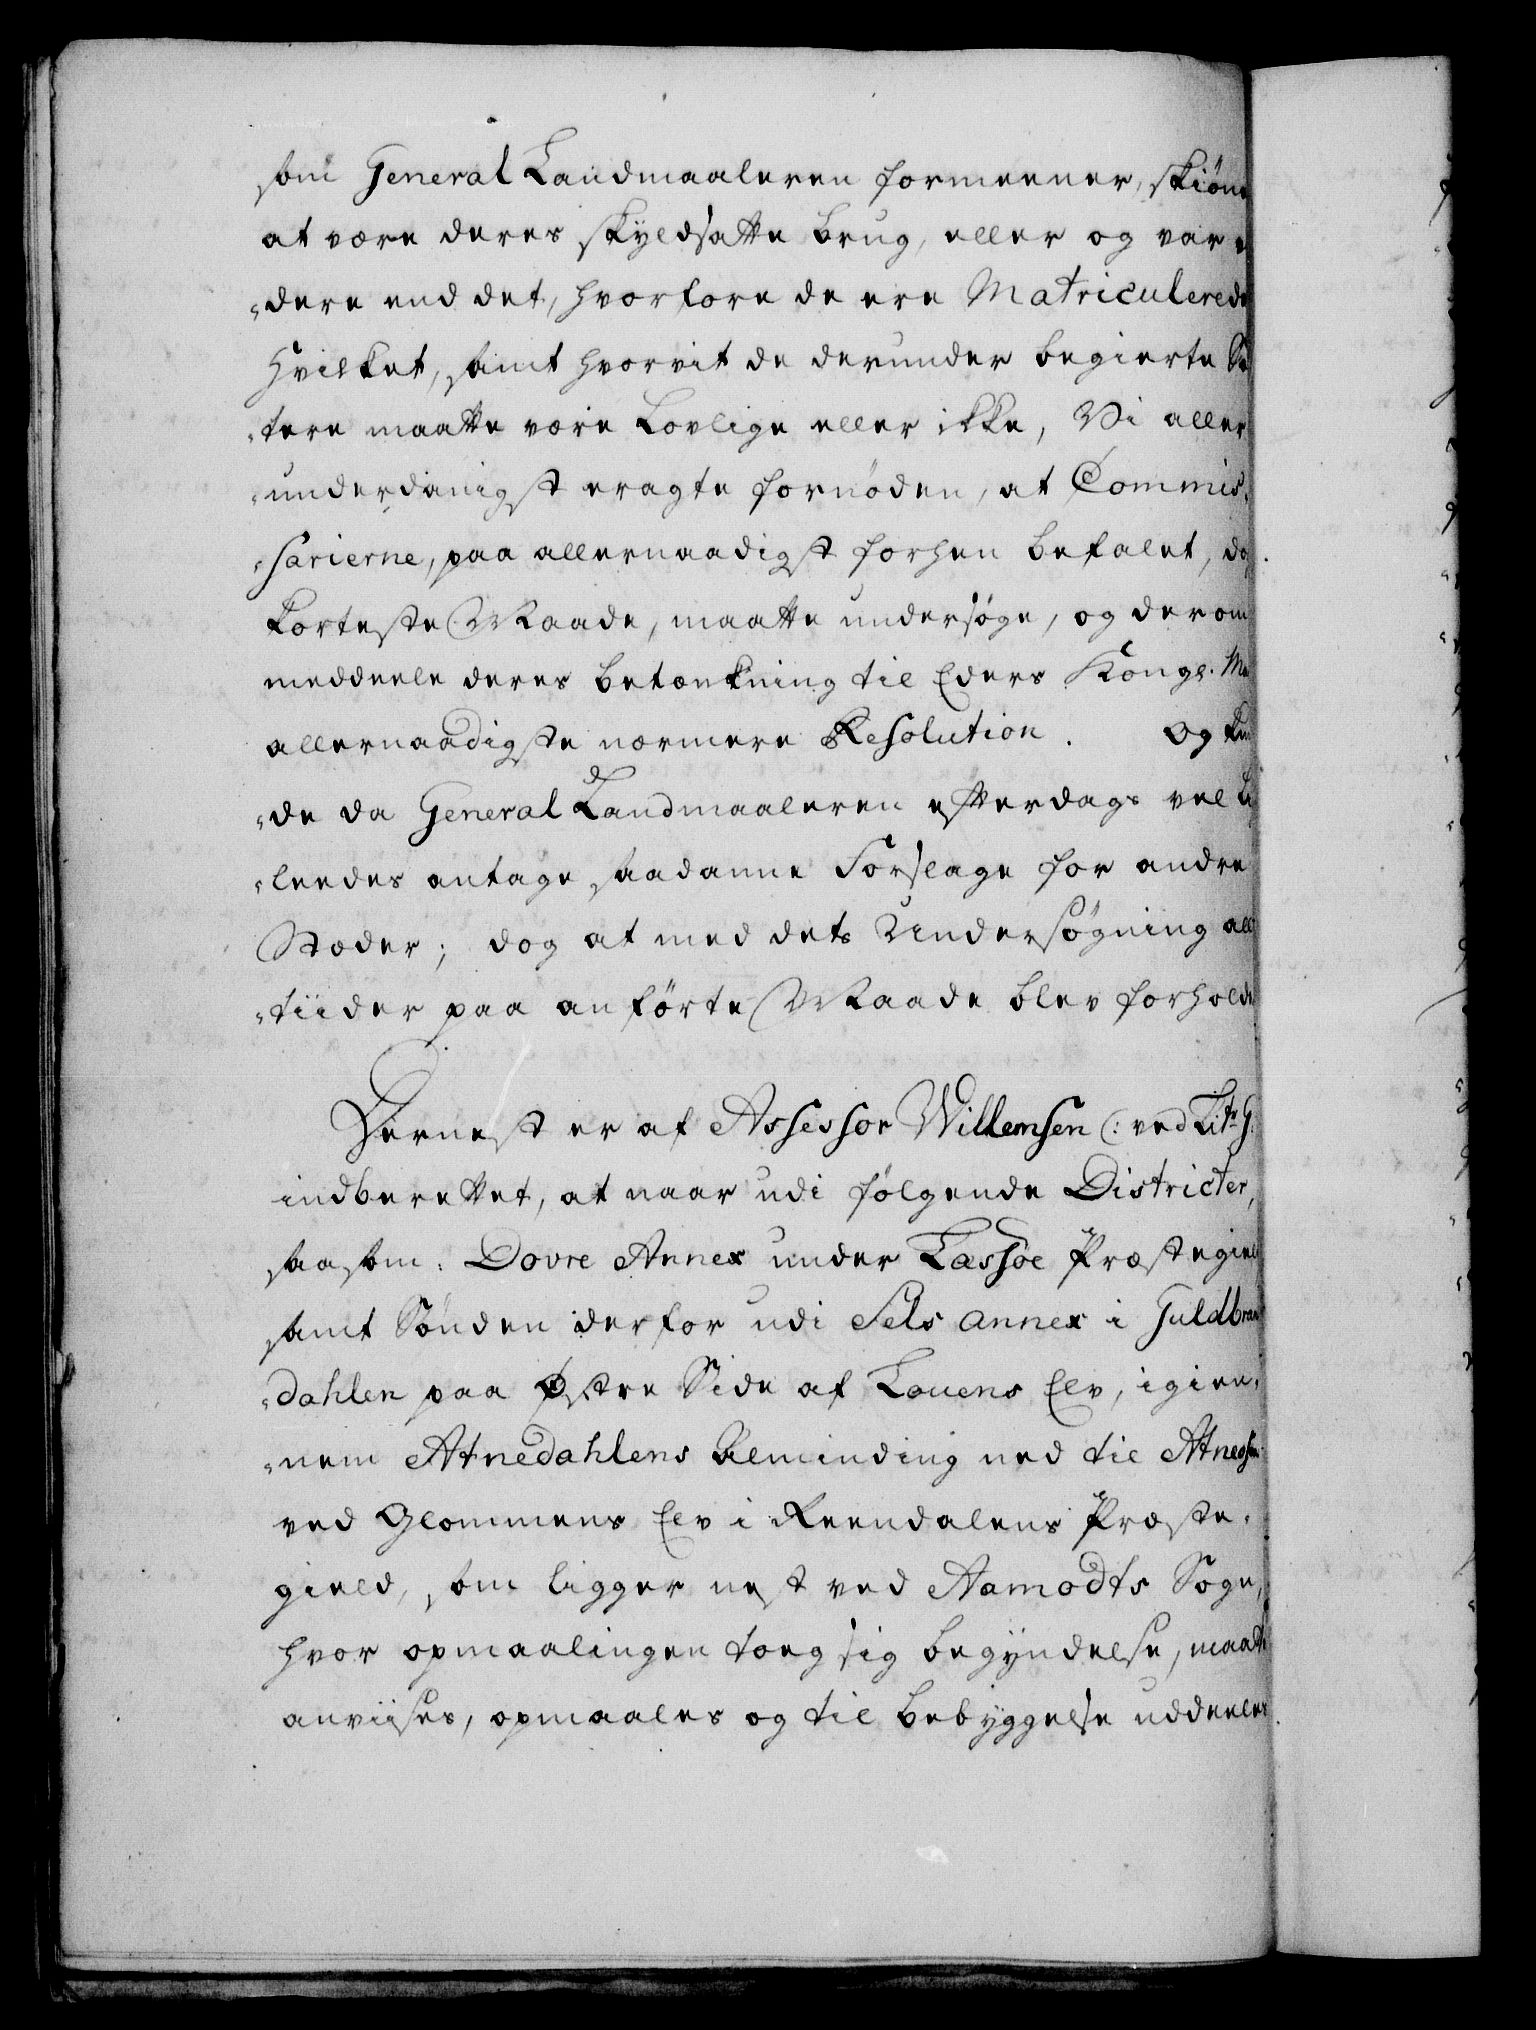 som General Landmaaleren formeener, skiøn
at være deres skyldsatte brug, eller og var
-dere end det, hvorfore de ere Matriculerede
Hvilket, samt hvorvit de derunder begierte Sæ
-tere maatte være Lovlige eller ikke, Vi aller
-underdanigst eragte fornøden, at Commis-
-sarierne, paa allernaadigst forhen befalet, dog
korteste Maade, maatte undersøge, og derom
meddeele deres betænkning til Eders Kongl. Ma
allernaadigste nærmere Resolution. Og kun
-de da General Landmaaleren efterdags vel
-leedes antage saadanne Forslage for andre
Stæder; dog at med dets Undersøgning all
-tiider paa anførte Maade blev forholdt
Dernest er af Assessor Willemsen (: ved Litr G:
indberettet, at naar udi følgende Districter,
saasom: Dovre Annex under Læssøe Præstegield
samt Sønden derfor udi Sels annex i Guldbran
-dahlen paa Østre Side af Louens Elv, igien-
-nem Atnedahlens Alminding ned til Atneos
ved Glommens Elv i Reendalens Præste-
gield, som ligger nest ved Aamodts Sogn,
hvor opmaalingen toeg sig begyndelse, maatte
anviises, opmaales og til bebyggelse uddeeles